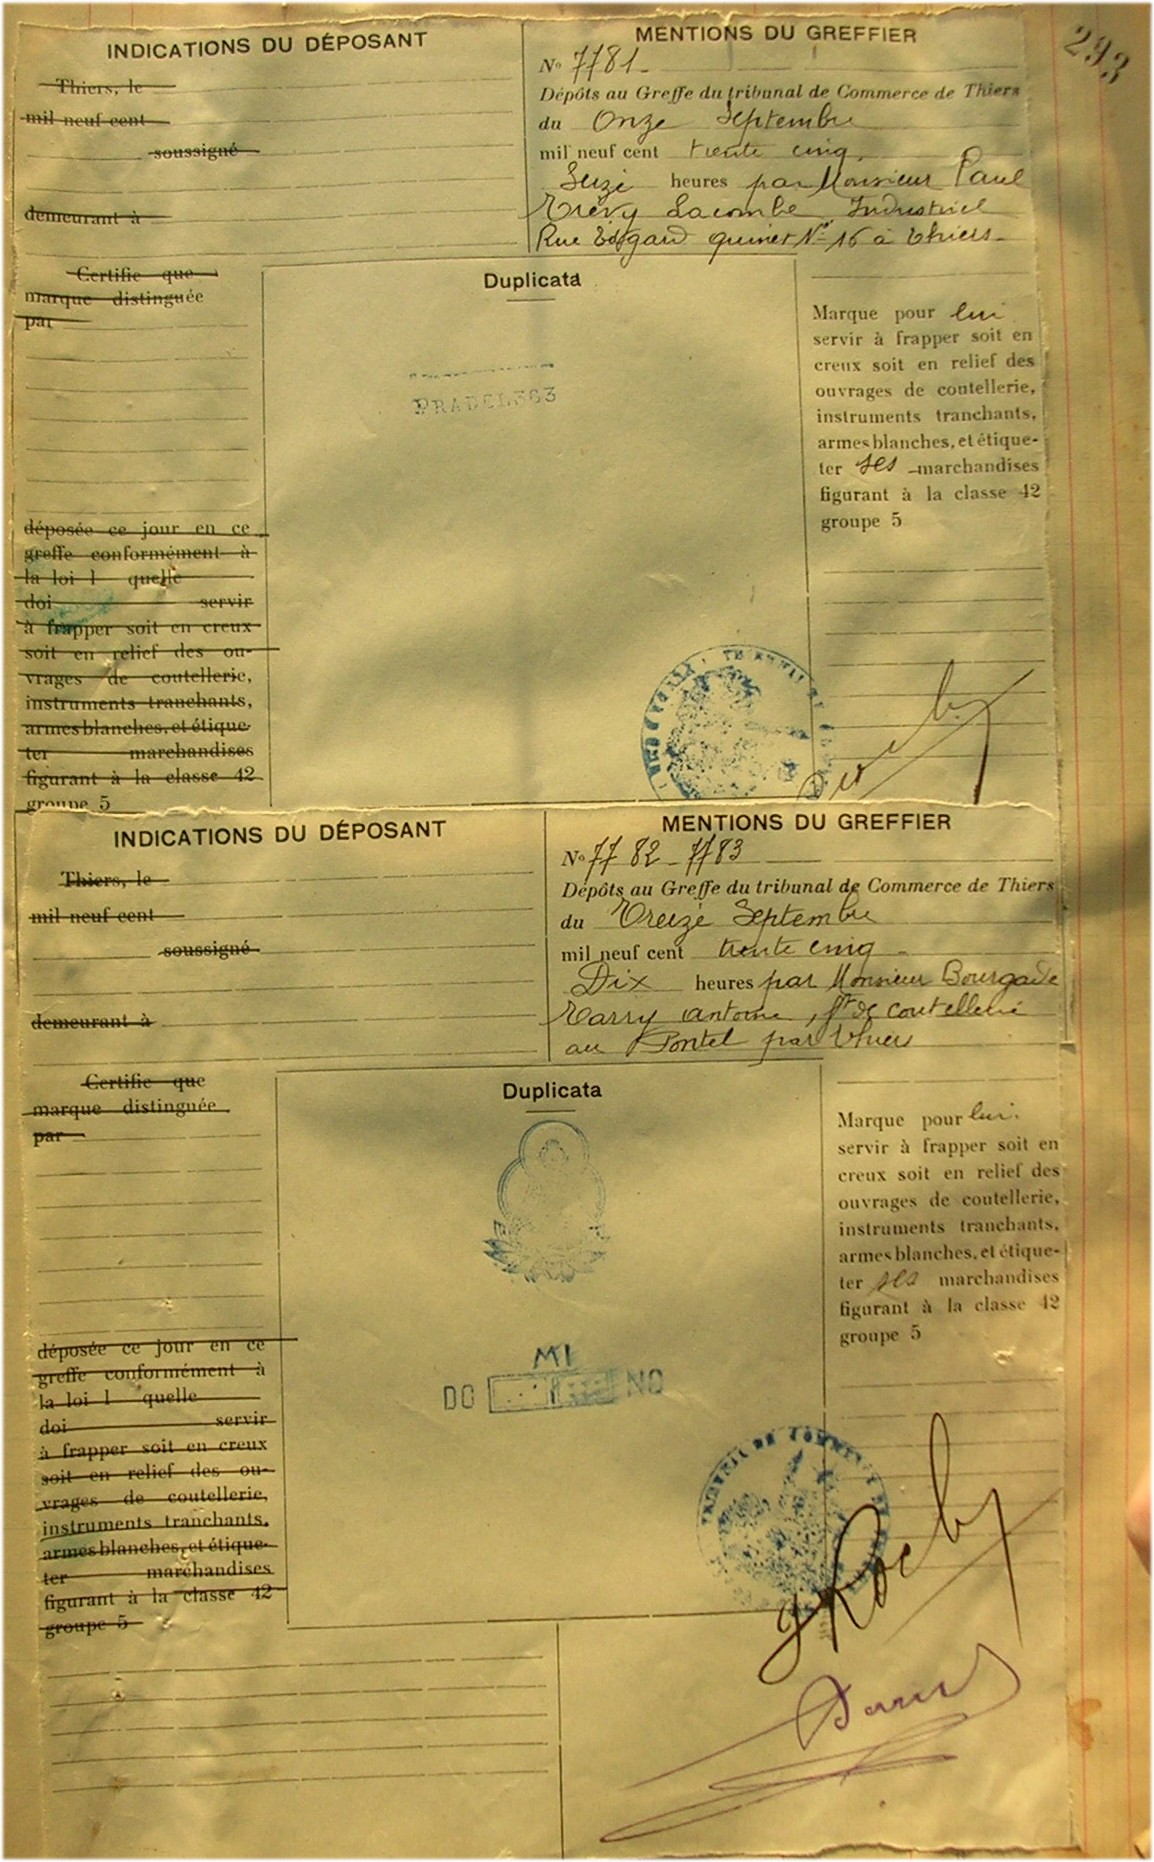 293
INDICATIONS DU DÉPOSANT
Thiers, le
mil neuf cent
soussigné
demeurant à
MENTIONS DU GREFFIER
No 7781
Dépôts au Greffe du tribunal de Commerce de Thiers
du Onze Septembre
mil neuf cent trente cinq
Seize heures par Monsieur Paul
Trévy Lacombe Industriel
Rue Edgard quinet No 16 à Thiers
Certifie que
marque distinguée
par
déposée ce jour en ce
greffe conformément à
la loi l quelle
doi servir
à frapper soit en creux
soit en relief des ou-
vrages de coutellerie,
instruments tranchants,
armes blanches, et étique-
ter marchandises
figurant à la classe 42
groupe 5
Duplicata
Marque pour lui
servir à frapper soit en
creux soit en relief des
ouvrages de coutellerie,
instruments tranchants,
armes blanches, et étique-
ter ses marchandises
figurant à la classe 42
groupe 5
INDICATIONS DU DÉPOSANT
Thiers, le
mil neuf cent
soussigné
demeurant à
MENTIONS DU GREFFIER
No 7782 - 7783
Dépôts au Greffe du tribunal de Commerce de Thiers
du Treize Septembre
mil neuf cent trente cinq
Dix heures par Monsieur Bourgade
Tarry antoine, ft de coutellerie
au Pontel par Thiers
Certifie que
marque distinguée
par
déposée ce jour en ce
greffe conformément à
la loi l quelle
doi servir
à frapper soit en creux
soit en relief des ou-
vrages de coutellerie,
instruments tranchants,
armes blanches, et étique-
ter marchandises
figurant à la classe 42
groupe 5
Duplicata
MI
DO NO
Marque pour lui.
servir à frapper soit en
creux soit en relief des
ouvrages de coutellerie,
instruments tranchants,
armes blanches, et étique-
ter ses marchandises
figurant à la classe 42
groupe 5